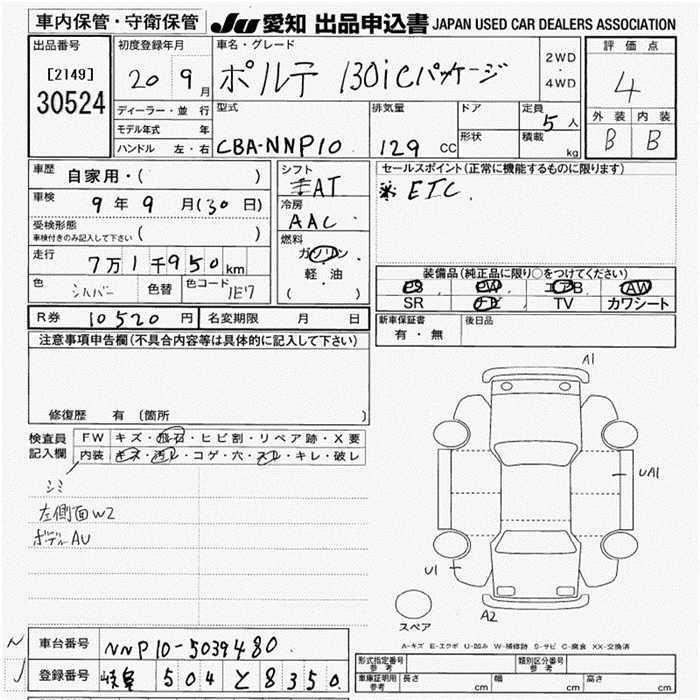 車内保管・守衛保管 JU 愛知 出品申込書 JAPAN USED CAR DEALERS ASSOCIATION
出品番号 初度登録年月 車名・グレード 評価点
[2149] 30524
20 9月 ポルテ 130iCパッケージ 2WD・4WD 4
ディーラー・並行 型式 排気量 ドア 定員 外装 内装
モデル年式 年 5人
ハンドル 左・右 CBA-NNP10 129cc 形状 積載 kg B B
車歴 自家用・( ) シフト AT セールスポイント(正常に機能するものに限ります)
※ ETC.
車検 9年9月(30日) 冷房 AAC
受検形態 ( )
車検付きのみ記入して下さい
燃料 ガソリン・軽・油
( )
走行 7万1千950km
色 シルバー 色替 色コード 1E7
装備品(純正品に限り○をつけてください)
PS PW エアB AW
SR ナビ TV カワシート
R券 10520円 名変期限 月 日
新車保証書 有・無 後日品
注意事項申告欄(不具合内容等は具体的に記入して下さい)
修復歴 有(箇所 )
検査員記入欄 FW キズ・飛石・ヒビ割・リペア跡・X要
内装 キズ・汚レ・コゲ・穴・スレ・キレ・破レ
シミ
左側面W2
ボデーAU
A1
UA1
U1
A2
スペア
A-キズ E-エクボ U-凹み W-補修跡 S-サビ C-腐食 XX-交換済
車台番号 NNP10-5039480
登録番号 岐阜 504 と 8350
形式指定番号 参考 類別区分番号 参考
車庫証明用 参考 長さ cm 幅 cm 高さ cm